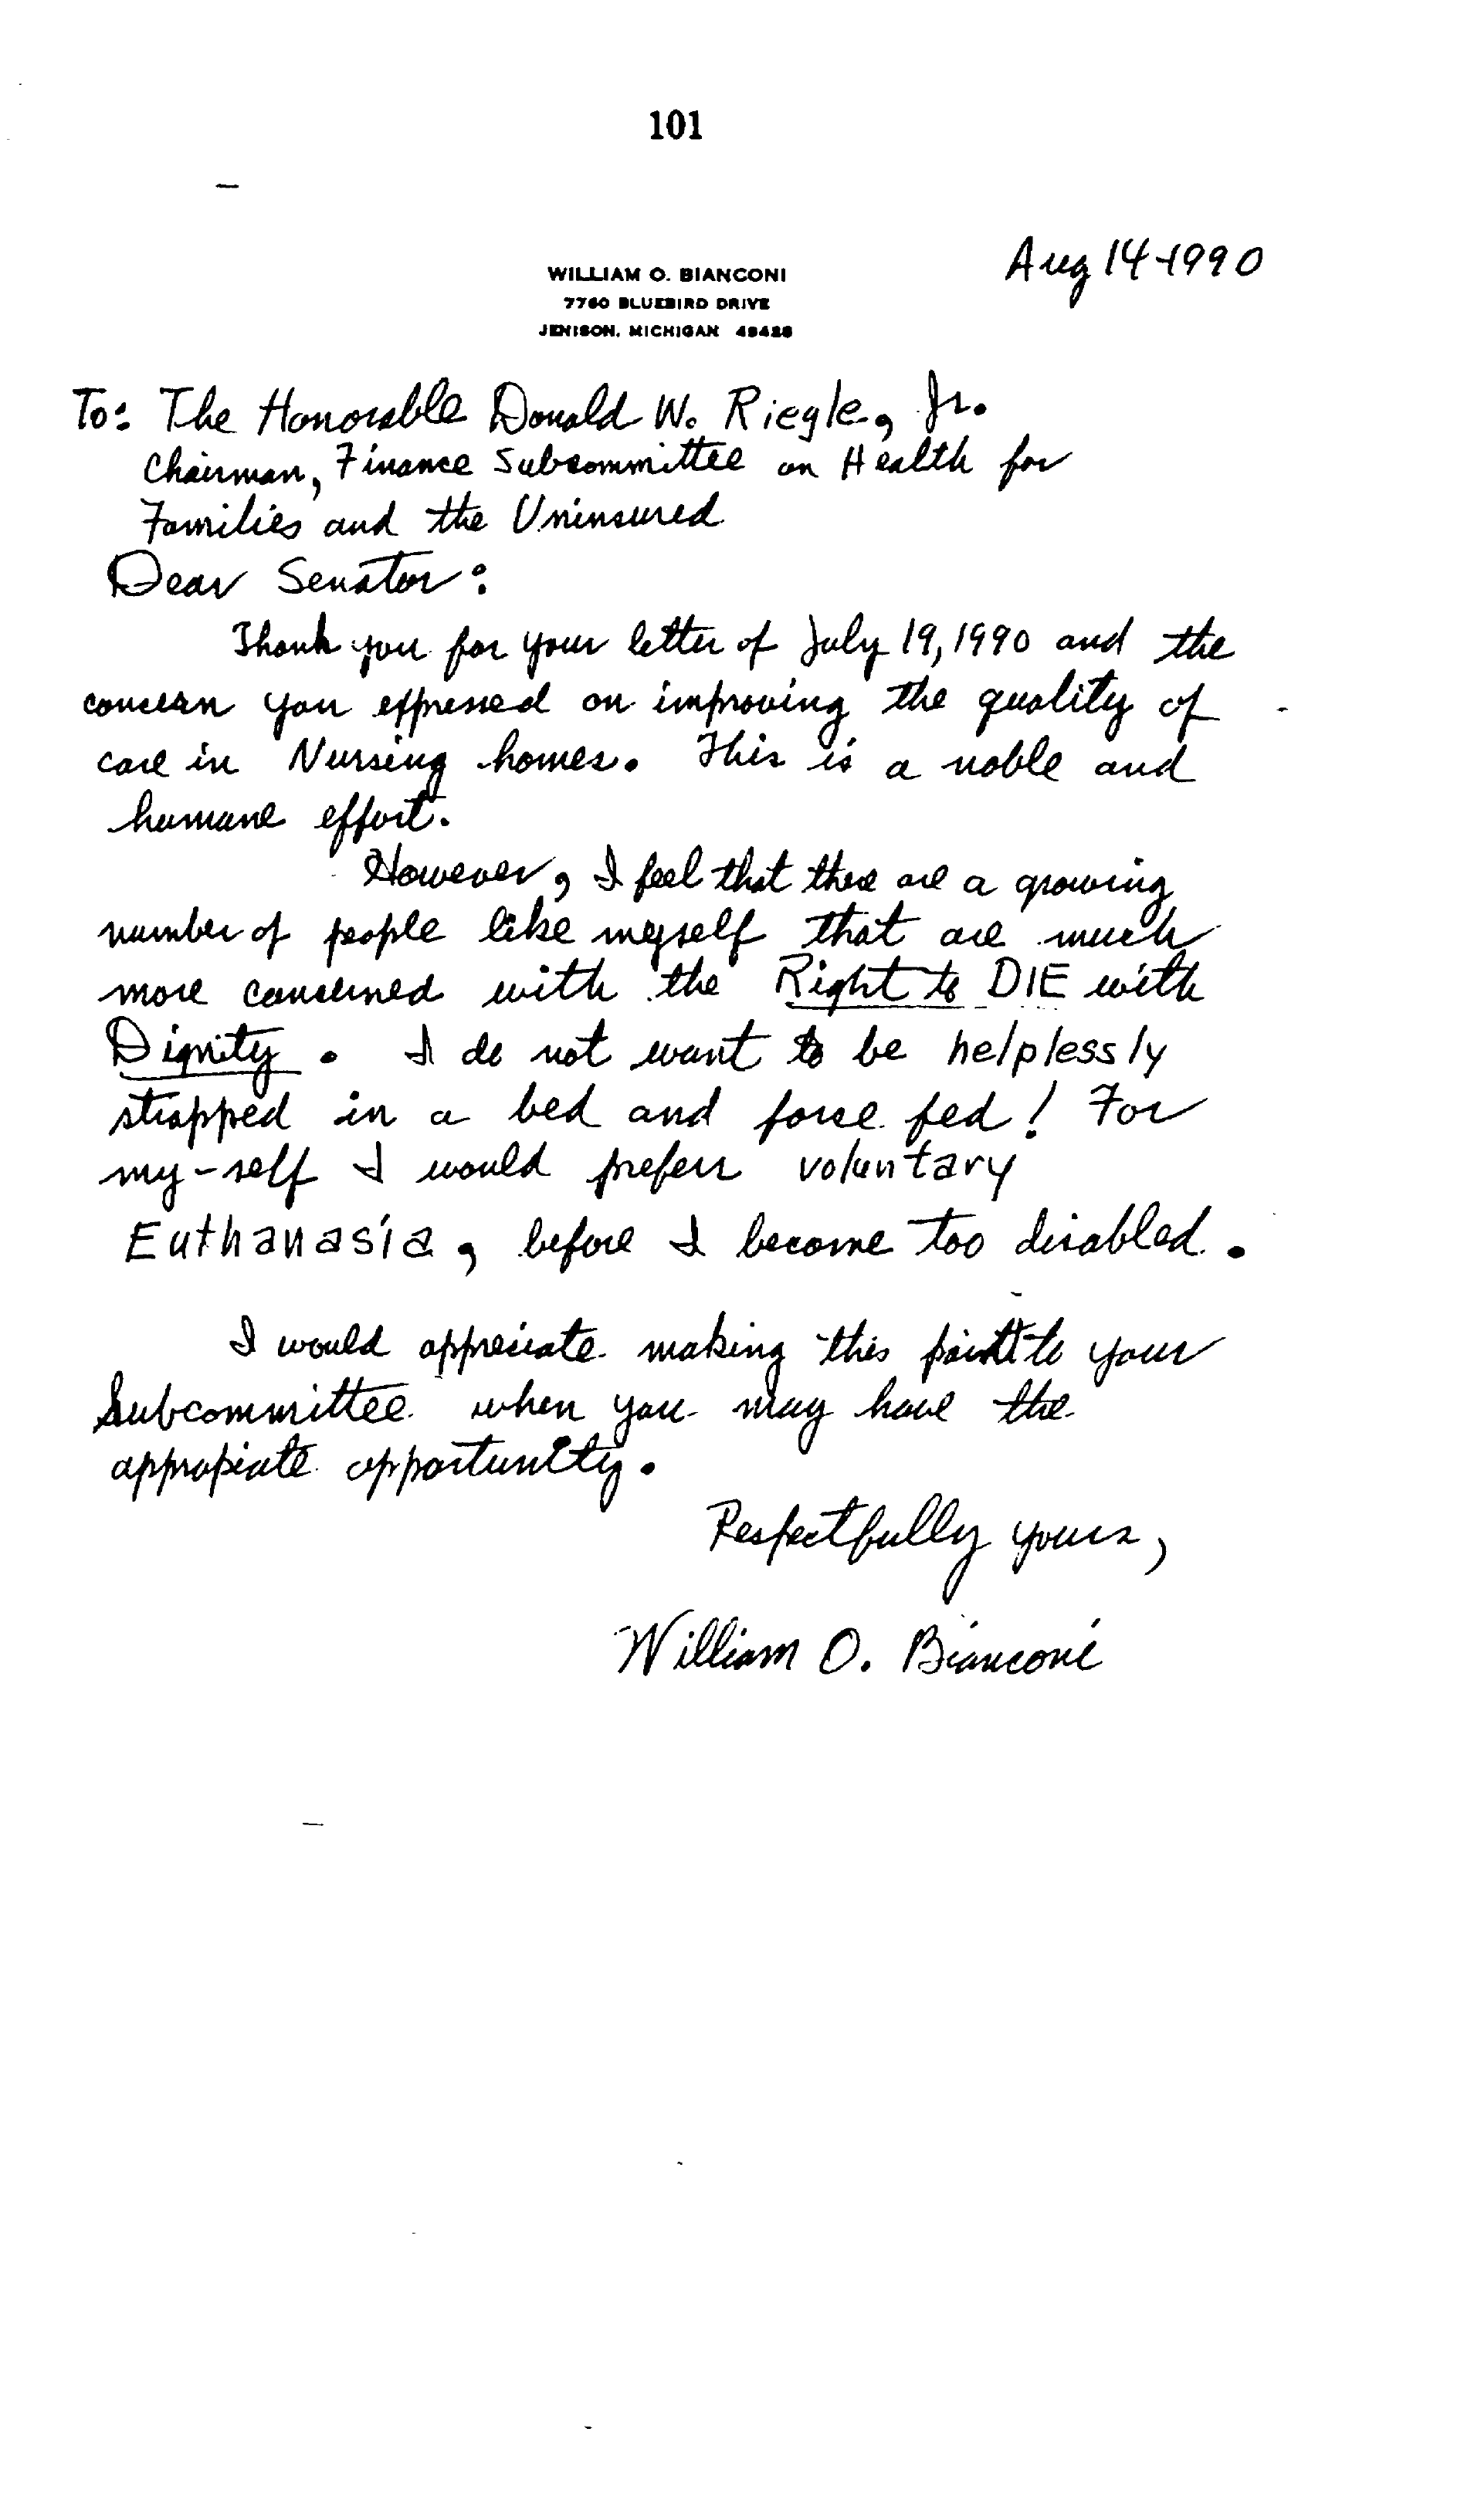 101
Aug 14-1990
WILLIAM O. BIANCONI
7760 BLUEBIRD DRIVE
JENISON, MICHIGAN 49428
To: The Honorable Donald W. Riegle, Jr.
Chairman, Finance Subcommittee on Health for
Families and the Uninsured
Dear Senator:
Thank you for your letter of July 19, 1990 and the
concern you expressed on improving the quality of
care in Nursing homes. This is a noble and
humane effort.
However, I feel that there are a growing
number of people like myself that are much
more concerned with the Right to DIE with
Dignity. I do not want to be helplessly
strapped in a bed and force fed! For
my-self I would prefer voluntary
Euthanasia, before I become too disabled.
I would appreciate making this point to your
Subcommittee when you may have the
appropiate opportunity.
Respectfully yours,
William O. Bianconi